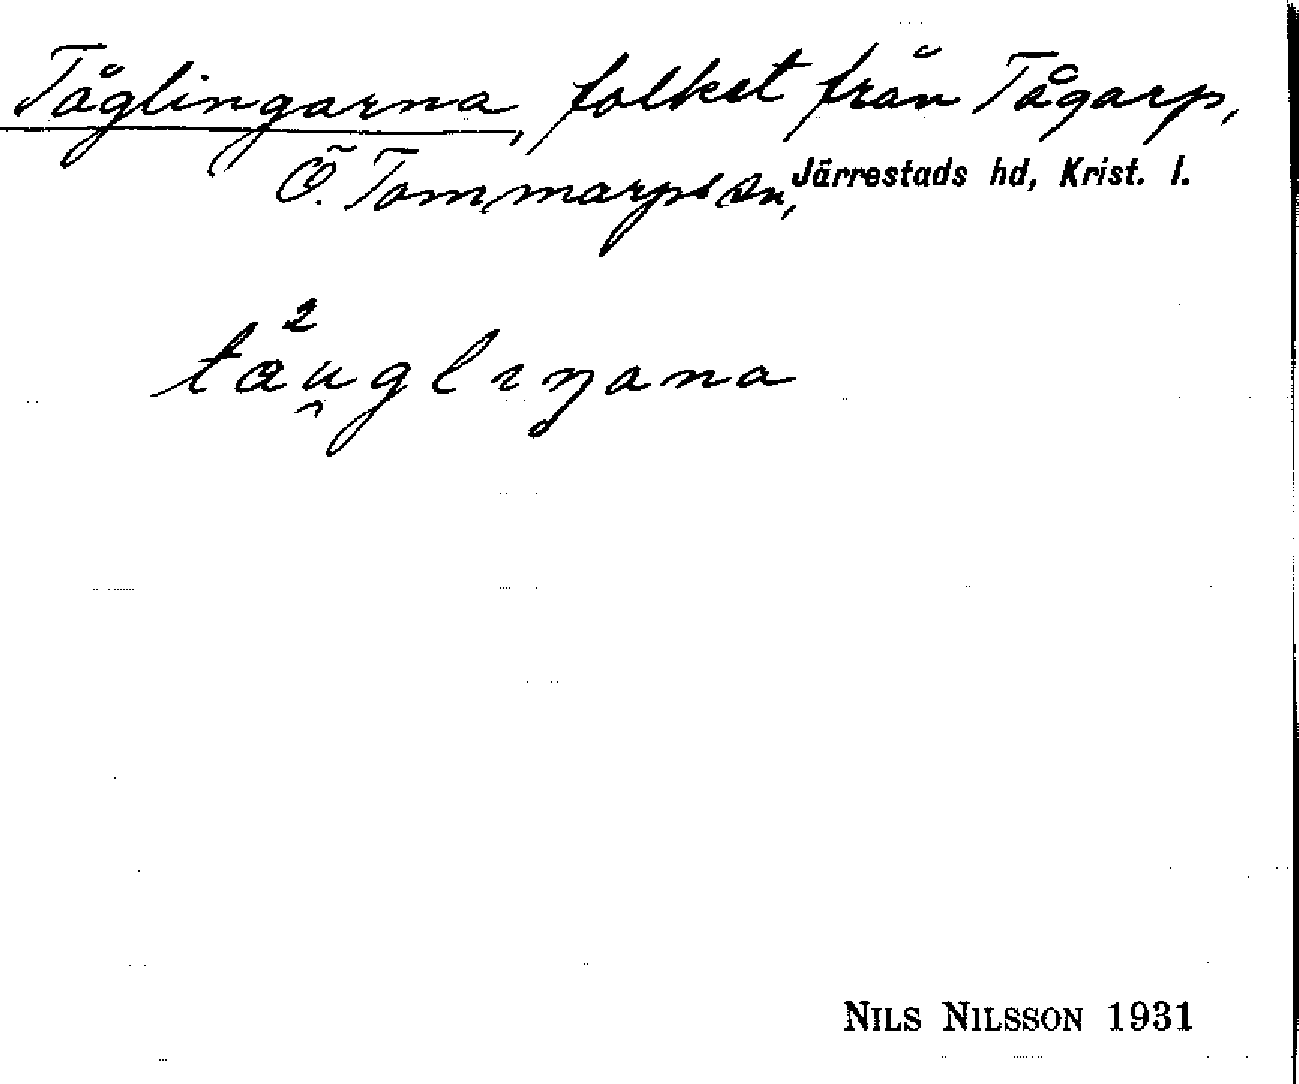 Tåglingarna, folket från Tågarp,
Ö. Tommarps sn, Järrestads hd, Krist. l.
2
tau̯glɩŋana
NILS NILSSON 1931